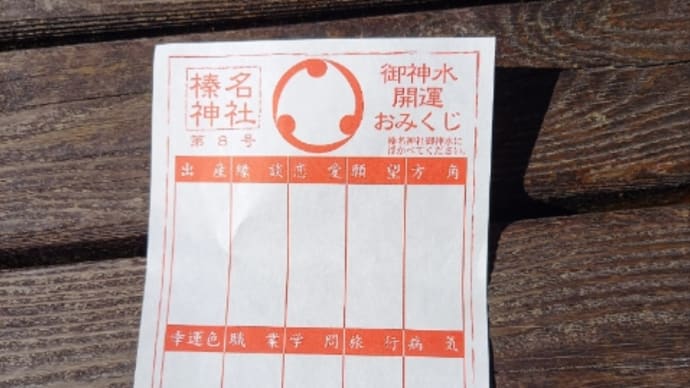 榛名
神社
第8号
御神水
開運
おみくじ
榛名神社御神水に
浮かべてください。
出産 縁談 恋愛 願望 方角
幸運色 職業 学問 旅行 病気